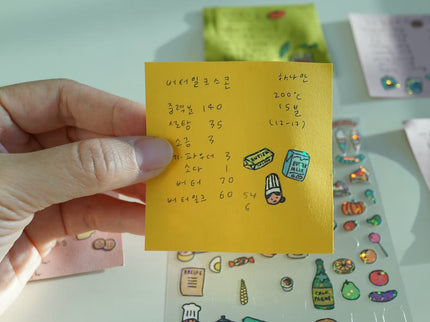 버터밀크스콘
하나만
200℃
15분
(12-17)
중력분 140
설탕 35
소금 3
파우더 3
소다 1
버터 70
버터밀크 60 54
6
RECIPE